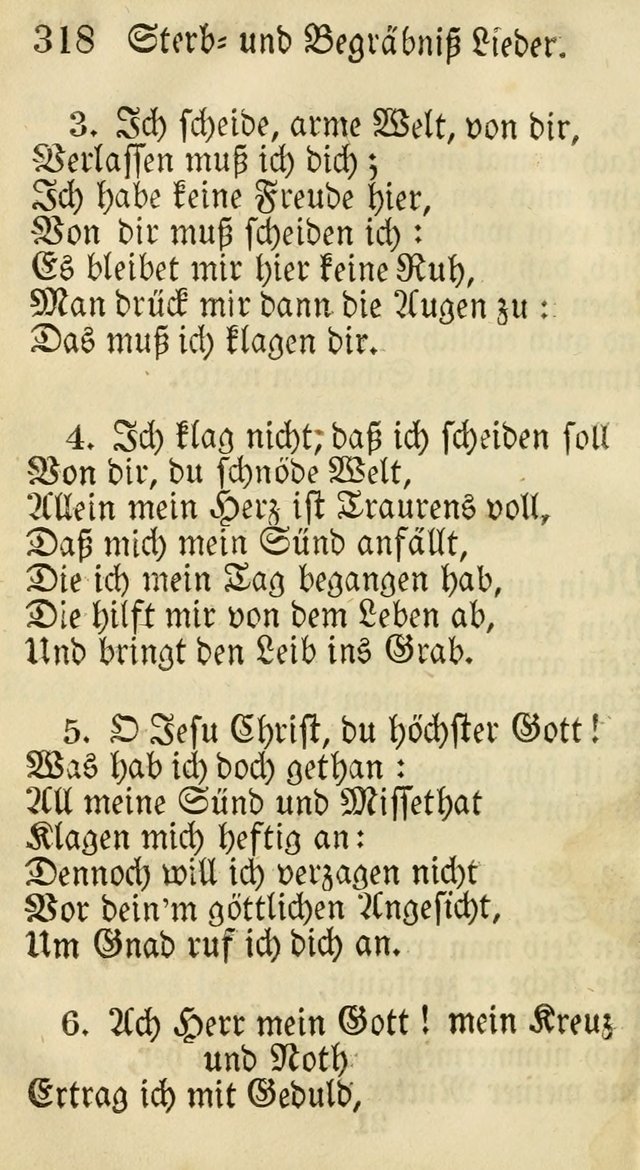 318 Sterb- und Begräbniß Lieder.
3. Ich scheide, arme Welt, von dir,
Verlassen muß ich dich;
Ich habe keine Freude hier,
Von dir muß scheiden ich:
Es bleibet mir hier keine Ruh,
Man drück mir dann die Augen zu:
Das muß ich klagen dir.
4. Ich klag nicht, daß ich scheiden soll
Von dir, du schnöde Welt,
Allein mein Herz ist Traurens voll,
Daß mich mein Sünd anfällt,
Die ich mein Tag begangen hab,
Die hilft mir von dem Leben ab,
Und bringt den Leib ins Grab.
5. O Jesu Christ, du höchster Gott!
Was hab ich doch gethan:
All meine Sünd und Missethat
Klagen mich heftig an:
Dennoch will ich verzagen nicht
Vor dein'm göttlichen Angesicht,
Um Gnad ruf ich dich an.
6. Ach Herr mein Gott! mein Kreuz
und Noth
Ertrag ich mit Geduld,